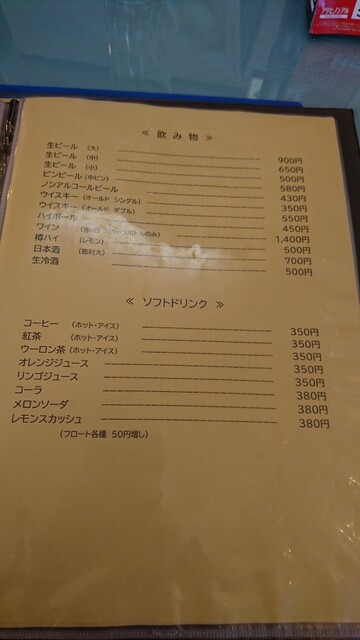 ≪ 飲み物 ≫
生ビール (大) 900円
生ビール (中) 650円
生ビール (小) 500円
ビンビール (中ビン) 580円
ノンアルコールビール 430円
ウイスキー (オールド シングル) 350円
ウイスキー (オールド ダブル) 550円
ハイボール 450円
ワイン (赤・白 ハーフボトルのみ) 1,400円
樽ハイ (レモン) 500円
日本酒 (徳利大) 700円
生冷酒 500円
≪ ソフトドリンク ≫
コーヒー (ホット・アイス) 350円
紅茶 (ホット・アイス) 350円
ウーロン茶 (ホット・アイス) 350円
オレンジジュース 350円
リンゴジュース 350円
コーラ 380円
メロンソーダ 380円
レモンスカッシュ 380円
(フロート各種 50円増し)